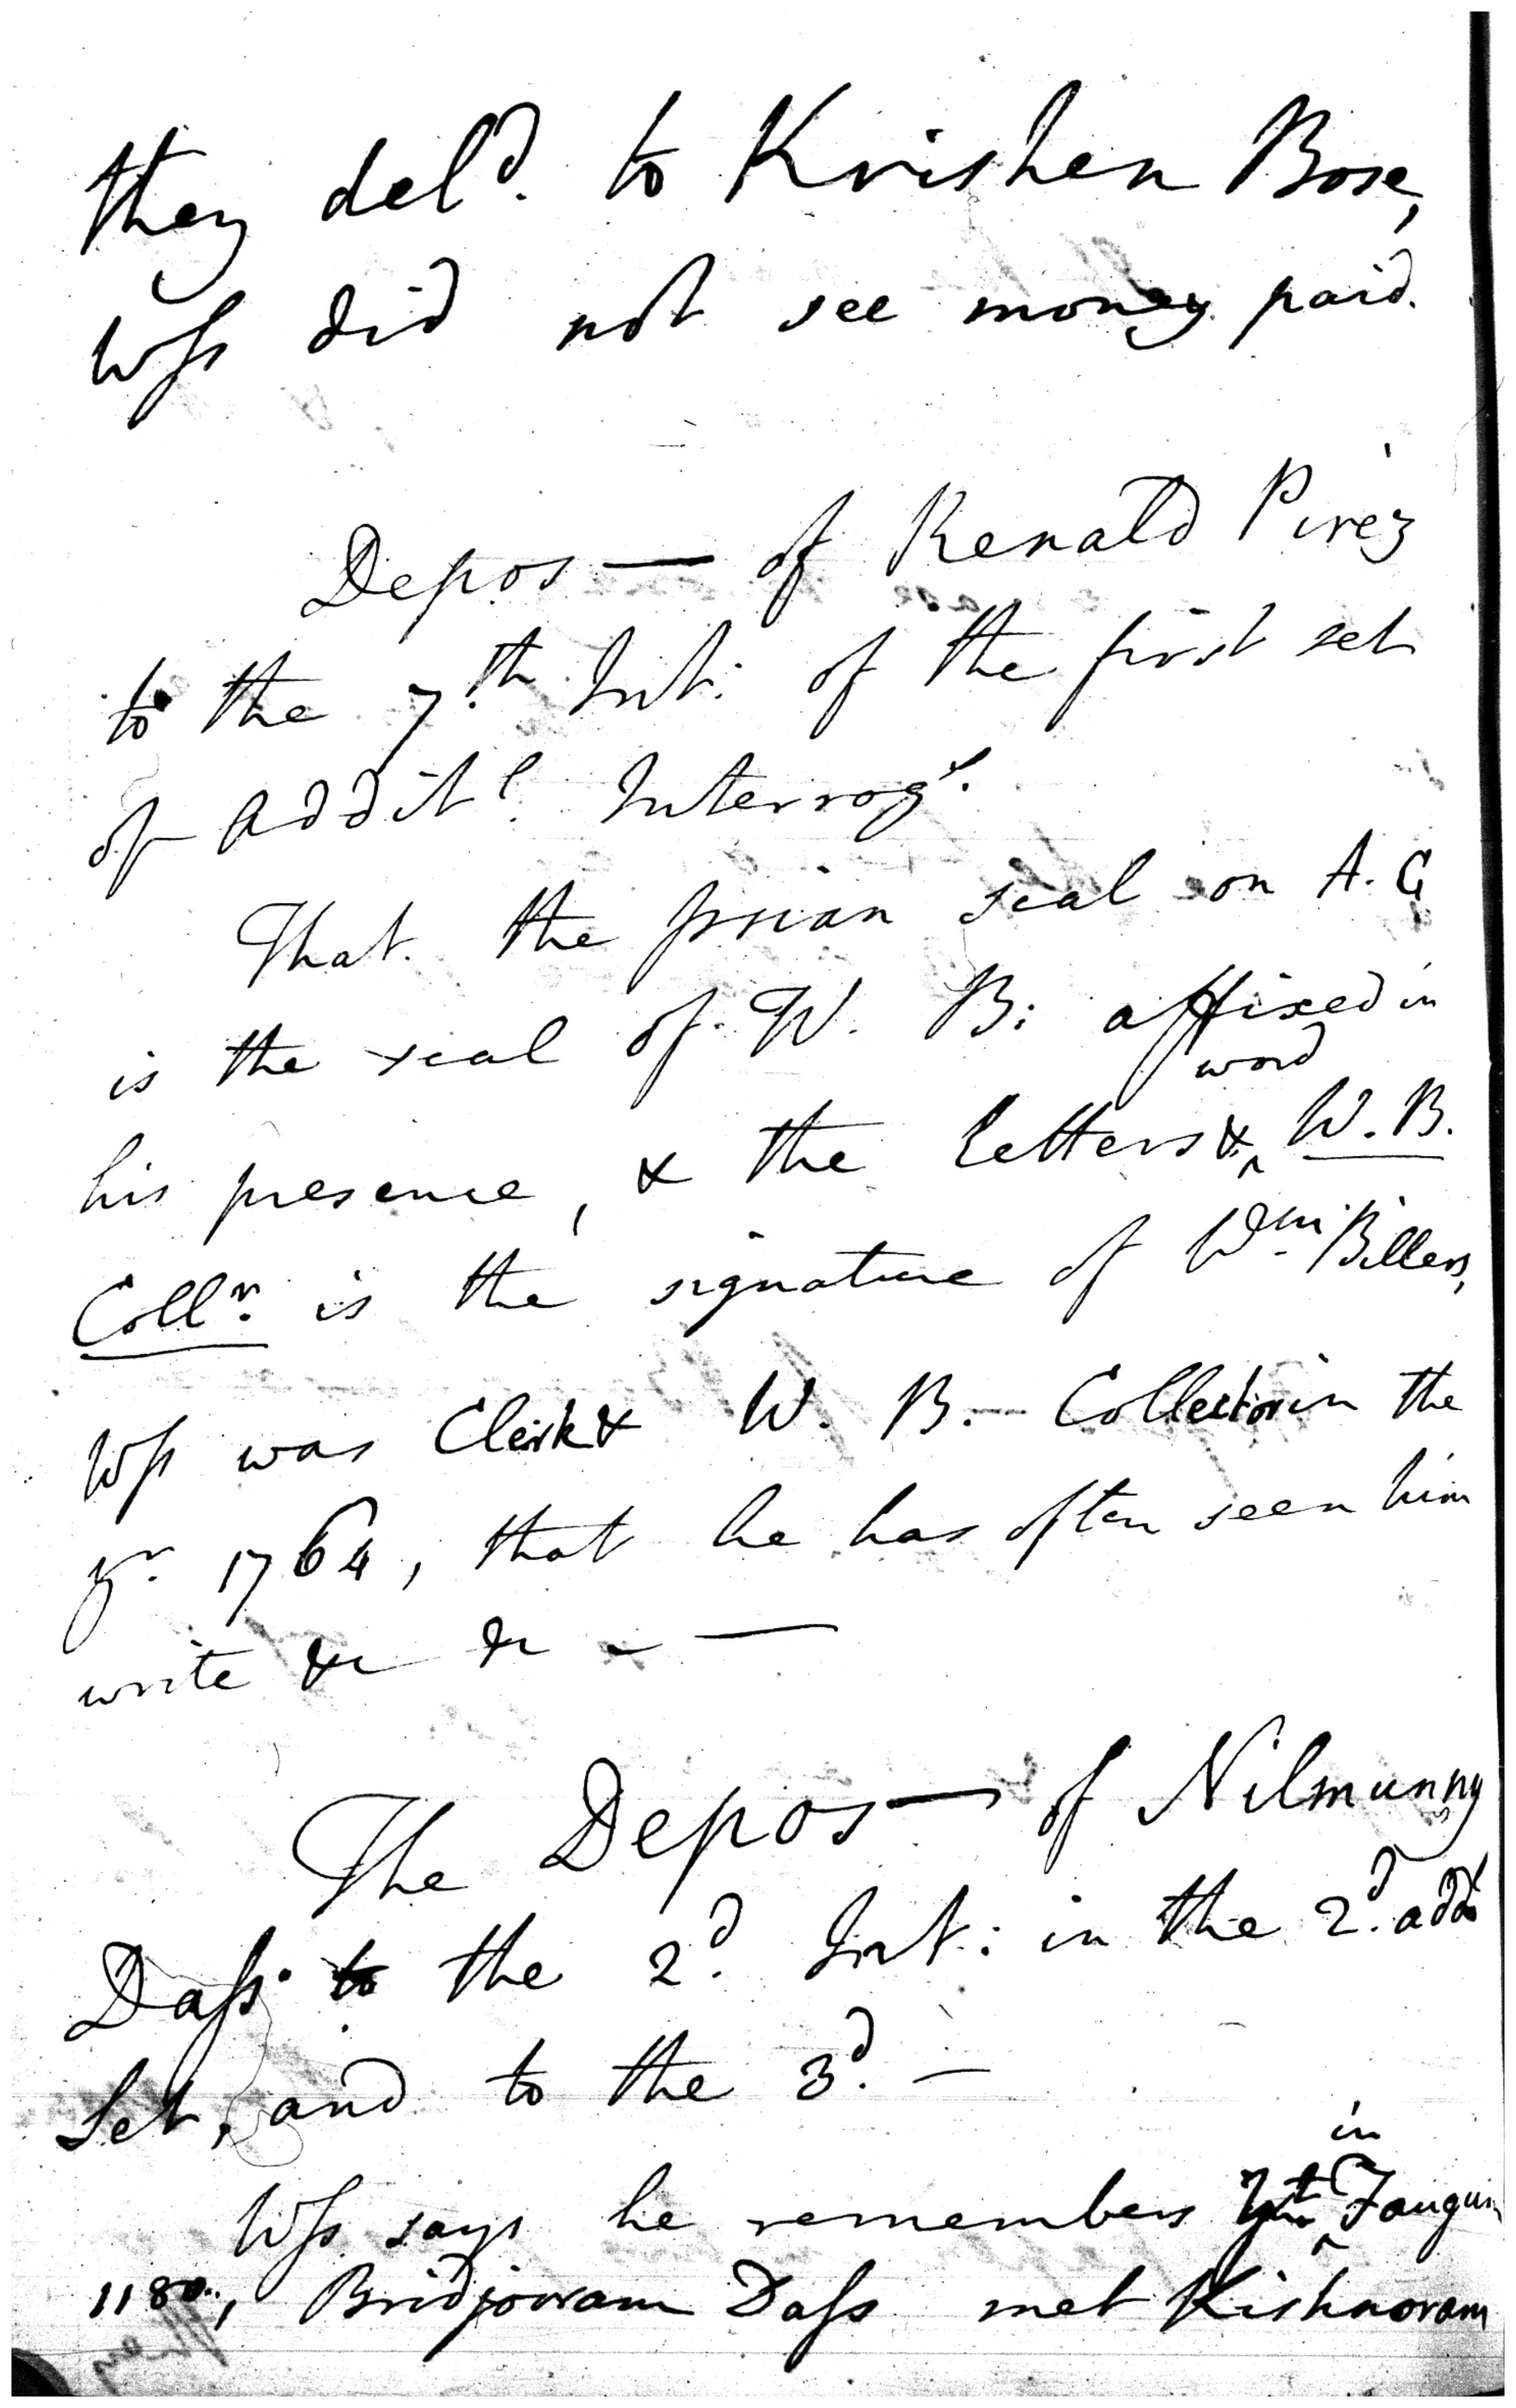 they del.d to Krishen Bose,
Wss did not see money paid.
Depos — of Renald Pirez
to the 7.th Int: of the first set
of addit.l Interrog.s
That the prsian seal on A. G
is the seal of W. B: affixed in
word
his presence, & the letters & ^ W. B.
Coll.r is the signature of W.m Billers,
Wss was Clerk & W. B. — Collector in the
yr. 1764, that he has often seen him
write &c &c — —
The Depos — of Nilmunny
Dass to the 2.d Int: in the 2.d add
Set, and to the 3.d —
in
Wss says he remembers yt. ^ Faugun
1180, Bridjooram Dass met Kishnoram